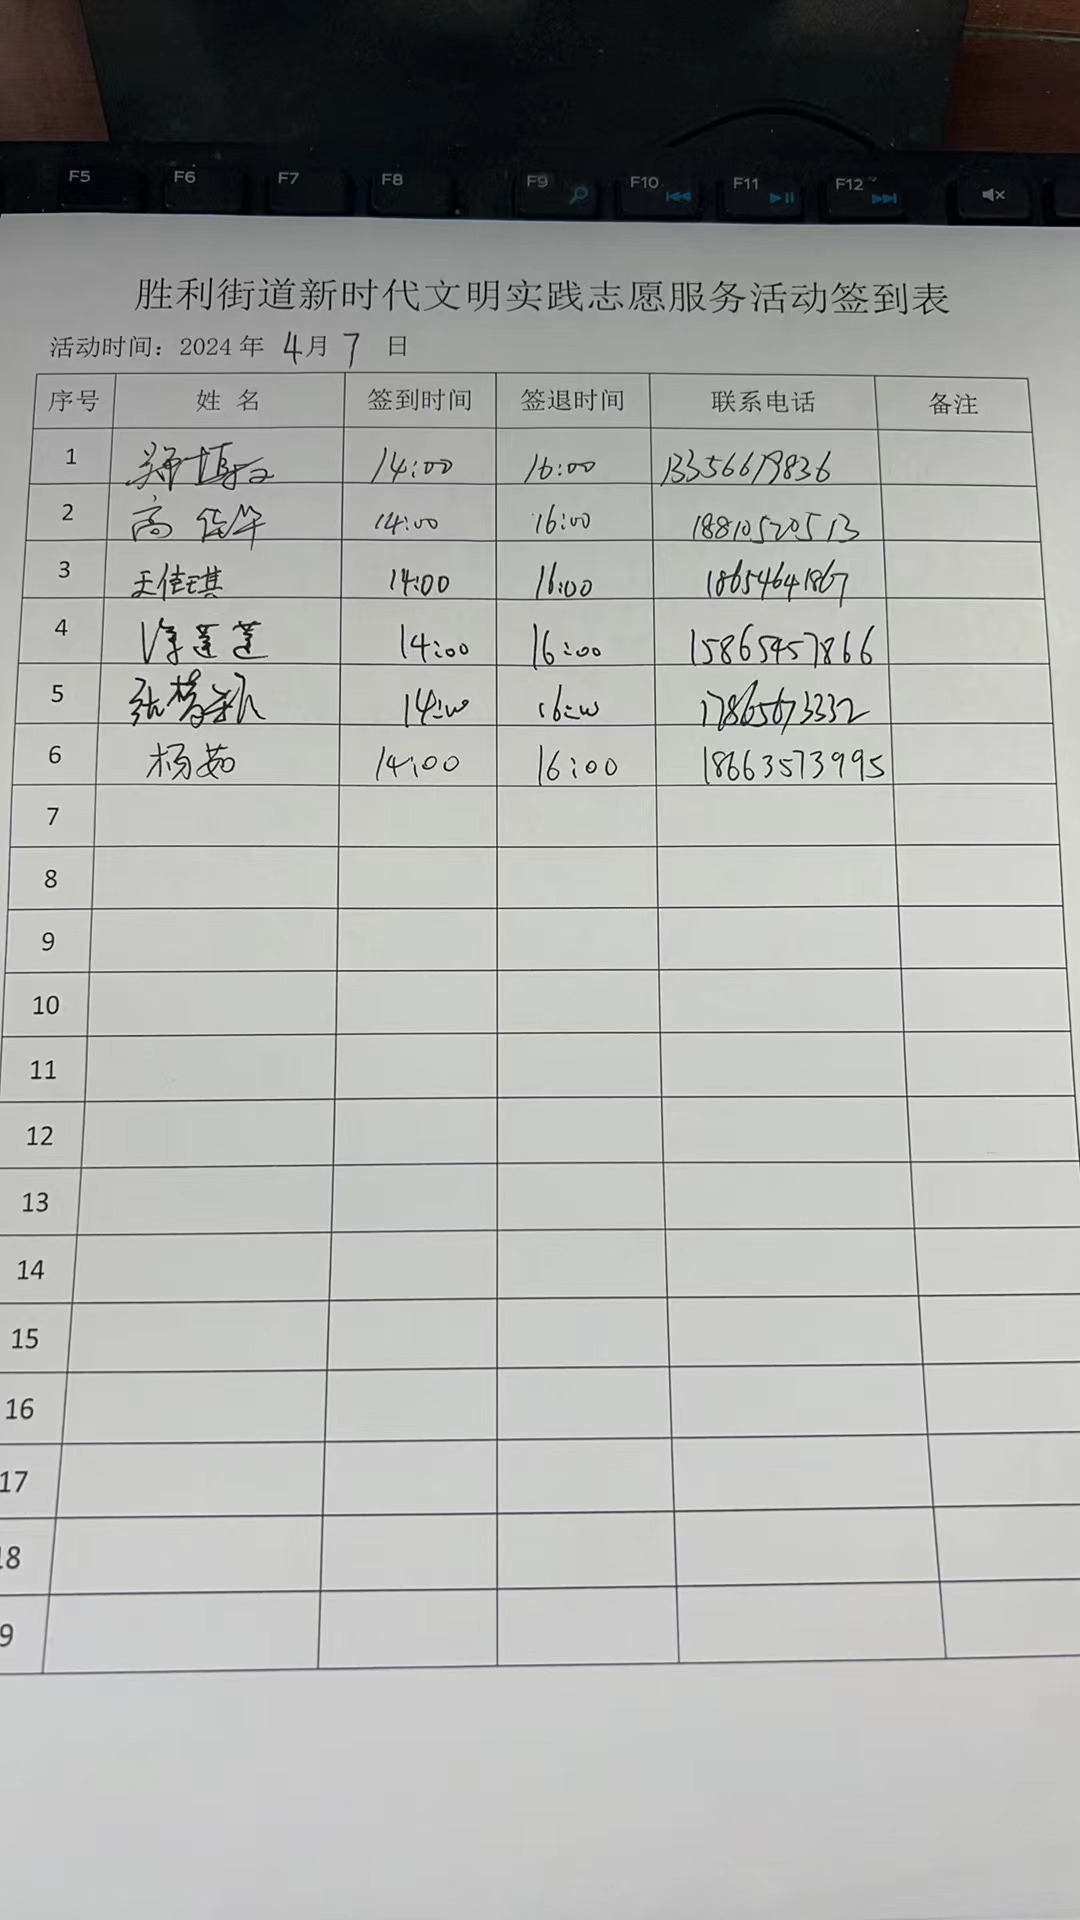 F5 F6 F7 F8 F9 F10 F11 F12
胜利街道新时代文明实践志愿服务活动签到表
活动时间：2024 年 4月 7 日
序号 姓 名 签到时间 签退时间 联系电话 备注
1 14:00 16:00 13356619836
2 高佳华 14:00 16:00 18810520513
3 王佳琪 14:00 16:00 18654641867
4 莲莲 14:00 16:00 15865457866
5 张 14:00 16:00 17865673332
6 杨茹 14:00 16:00 18663573995
7
8
9
10
11
12
13
14
15
16
17
18
9